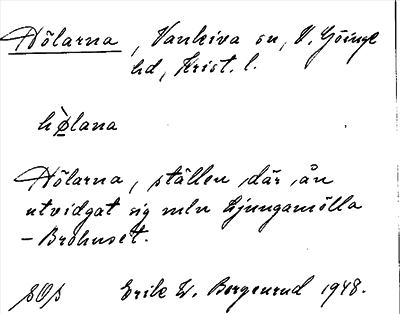 Hölarna, Vankiva sn, V. Göinge
hd, Krist. l.
hø̀lana
Hölarna, ställen, där ån
utvidgat sig mln Ljungamölla
-Brohuset.
Erik W. Bergenrud 1948.